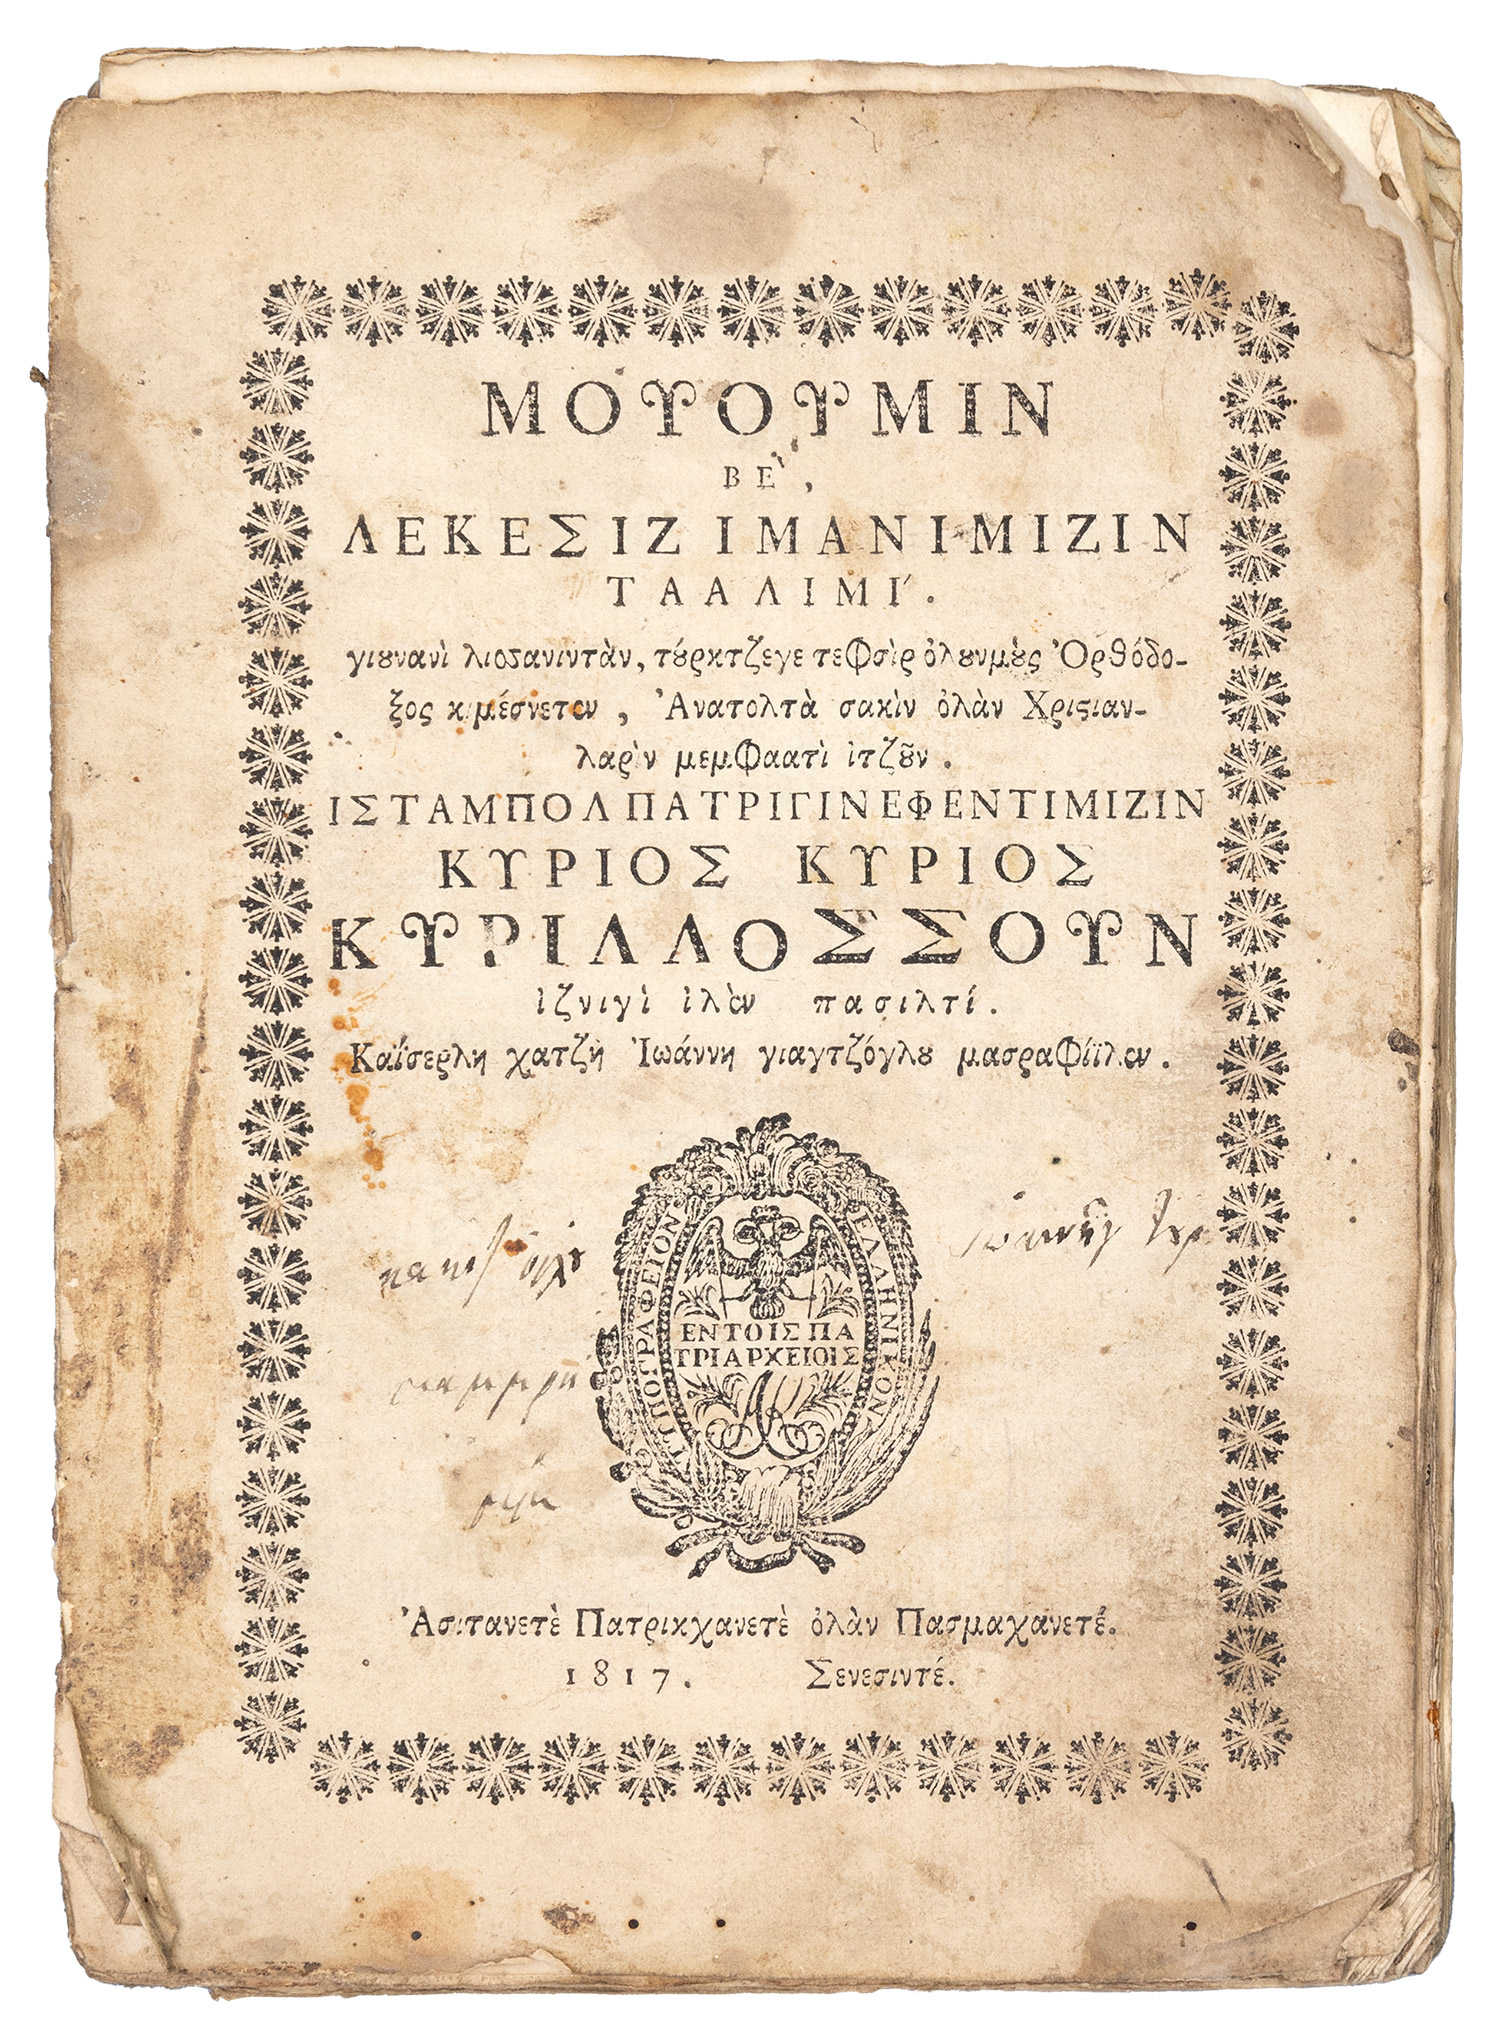 ΜΟΥΟΥΜΙΝ
ΒῈ,
ΛΕΚΕΣΙΖ ΙΜΑΝΙΜΙΖΙΝ
ΤΑΑΛΙΜΊ.
γιȣνανὶ λιοζανιντὰν, τȣ́ρκτζεγε τεφσὶρ ὀλȣνμȣ̀ς Ὀρθόδο-
ξος κιμέσνεταν, Ἀνατολτὰ σακὶν ὀλὰν Χριϛιαν-
λαρὶν μεμφαατὶ ἰτζȣ͂ν.
ΙΣΤΑΜΠΟΛ ΠΑΤΡΙΓΙΝ ΕΦΕΝΤΙΜΙΖΙΝ
ΚΥΡΙΟΣ ΚΥΡΙΟΣ
ΚΥΡΙΛΛΟΣΣΟΥΝ
ἰζνιγὶ ἰλὲν πασιλτί.
Καΐσερλη χατζῆ Ἰωάννη γιαγτζόγλȣ μασραφίϊλεν.
ΤΥΠΟΓΡΑΦΕΙΟΝ ΕΛΛΗΝΙΚΟΝ
ΕΝ ΤΟΙΣ ΠΑ
ΤΡΙΑΡΧΕΙΟΙΣ
Ἀσιτανετὲ Πατρικχανετὲ ὀλὰν Πασμαχανετέ.
1817. Σενεσιντέ.